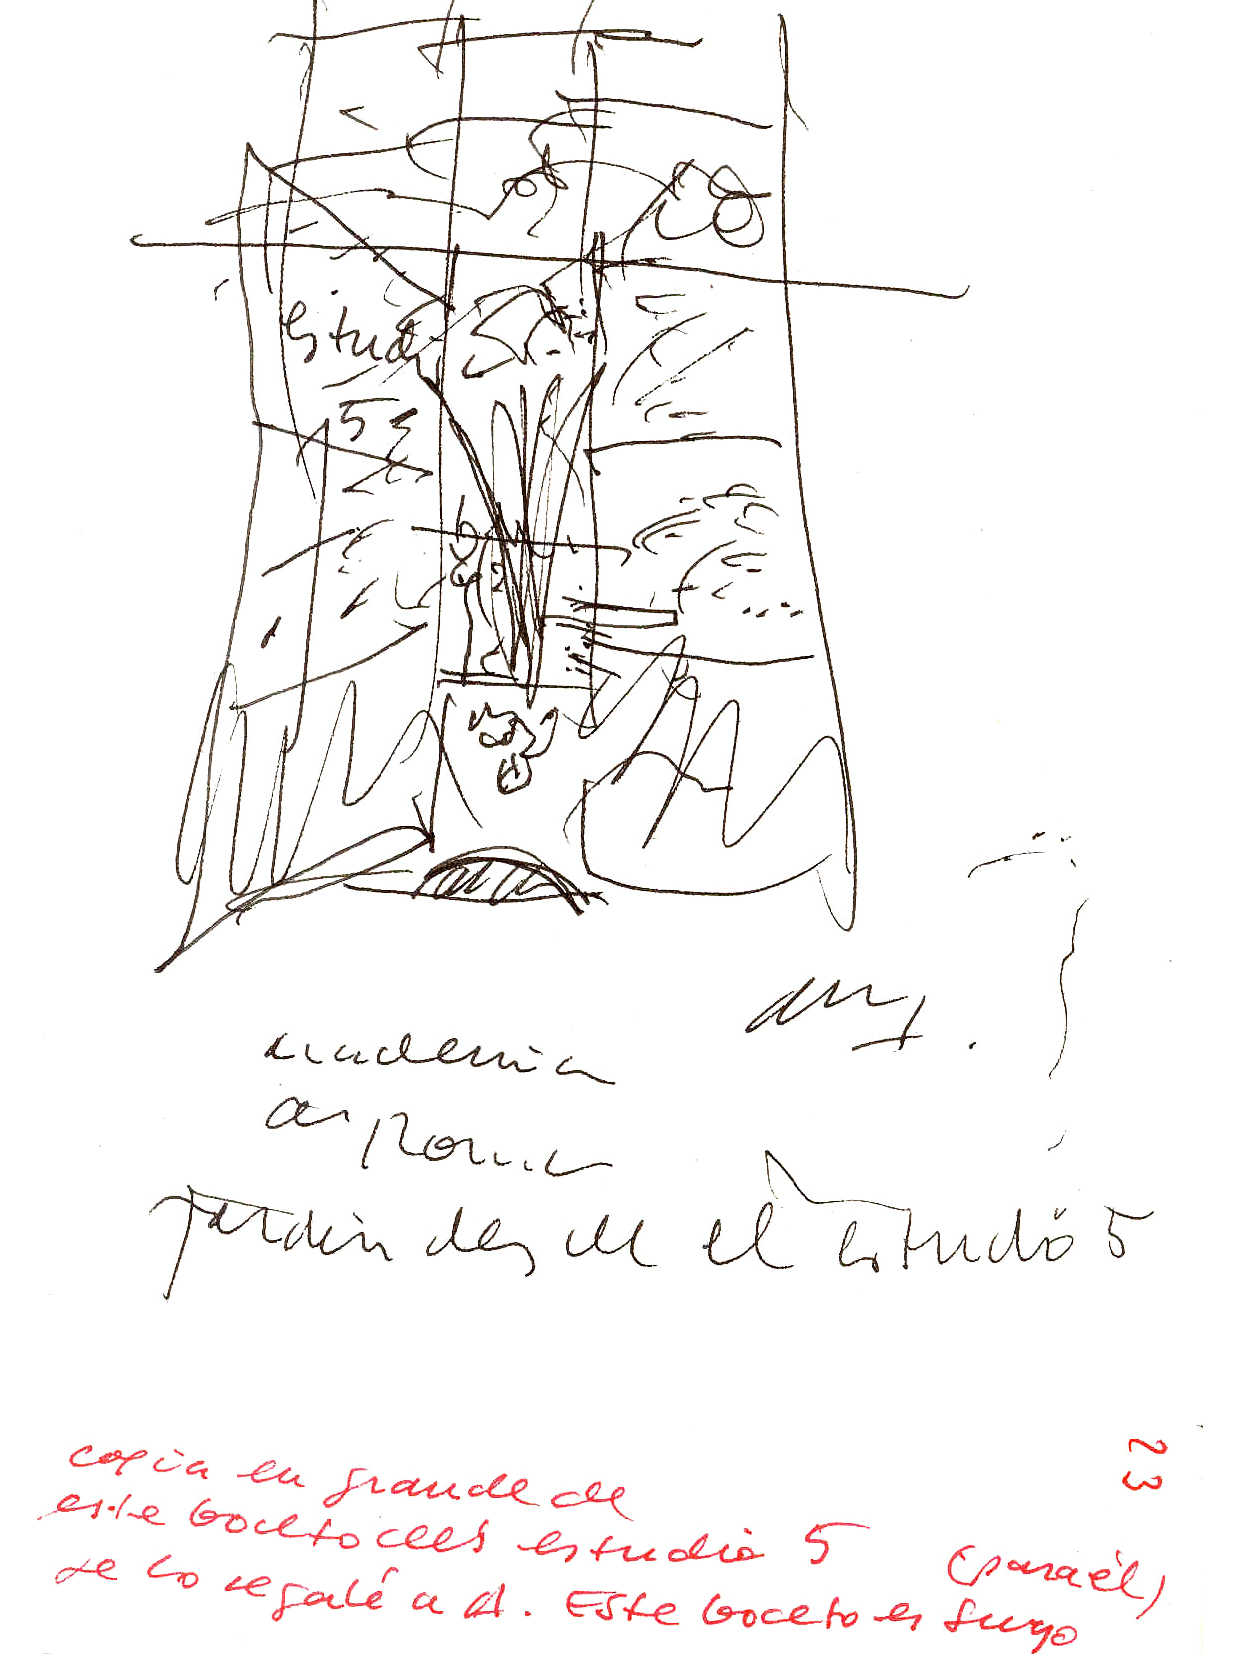 Estud
5
academia
de Roma
jardin desde el estudio 5
23
copia en grande de
este boceto del estudio 5
se lo regalé a A. Este boceto es suyo
(para él)